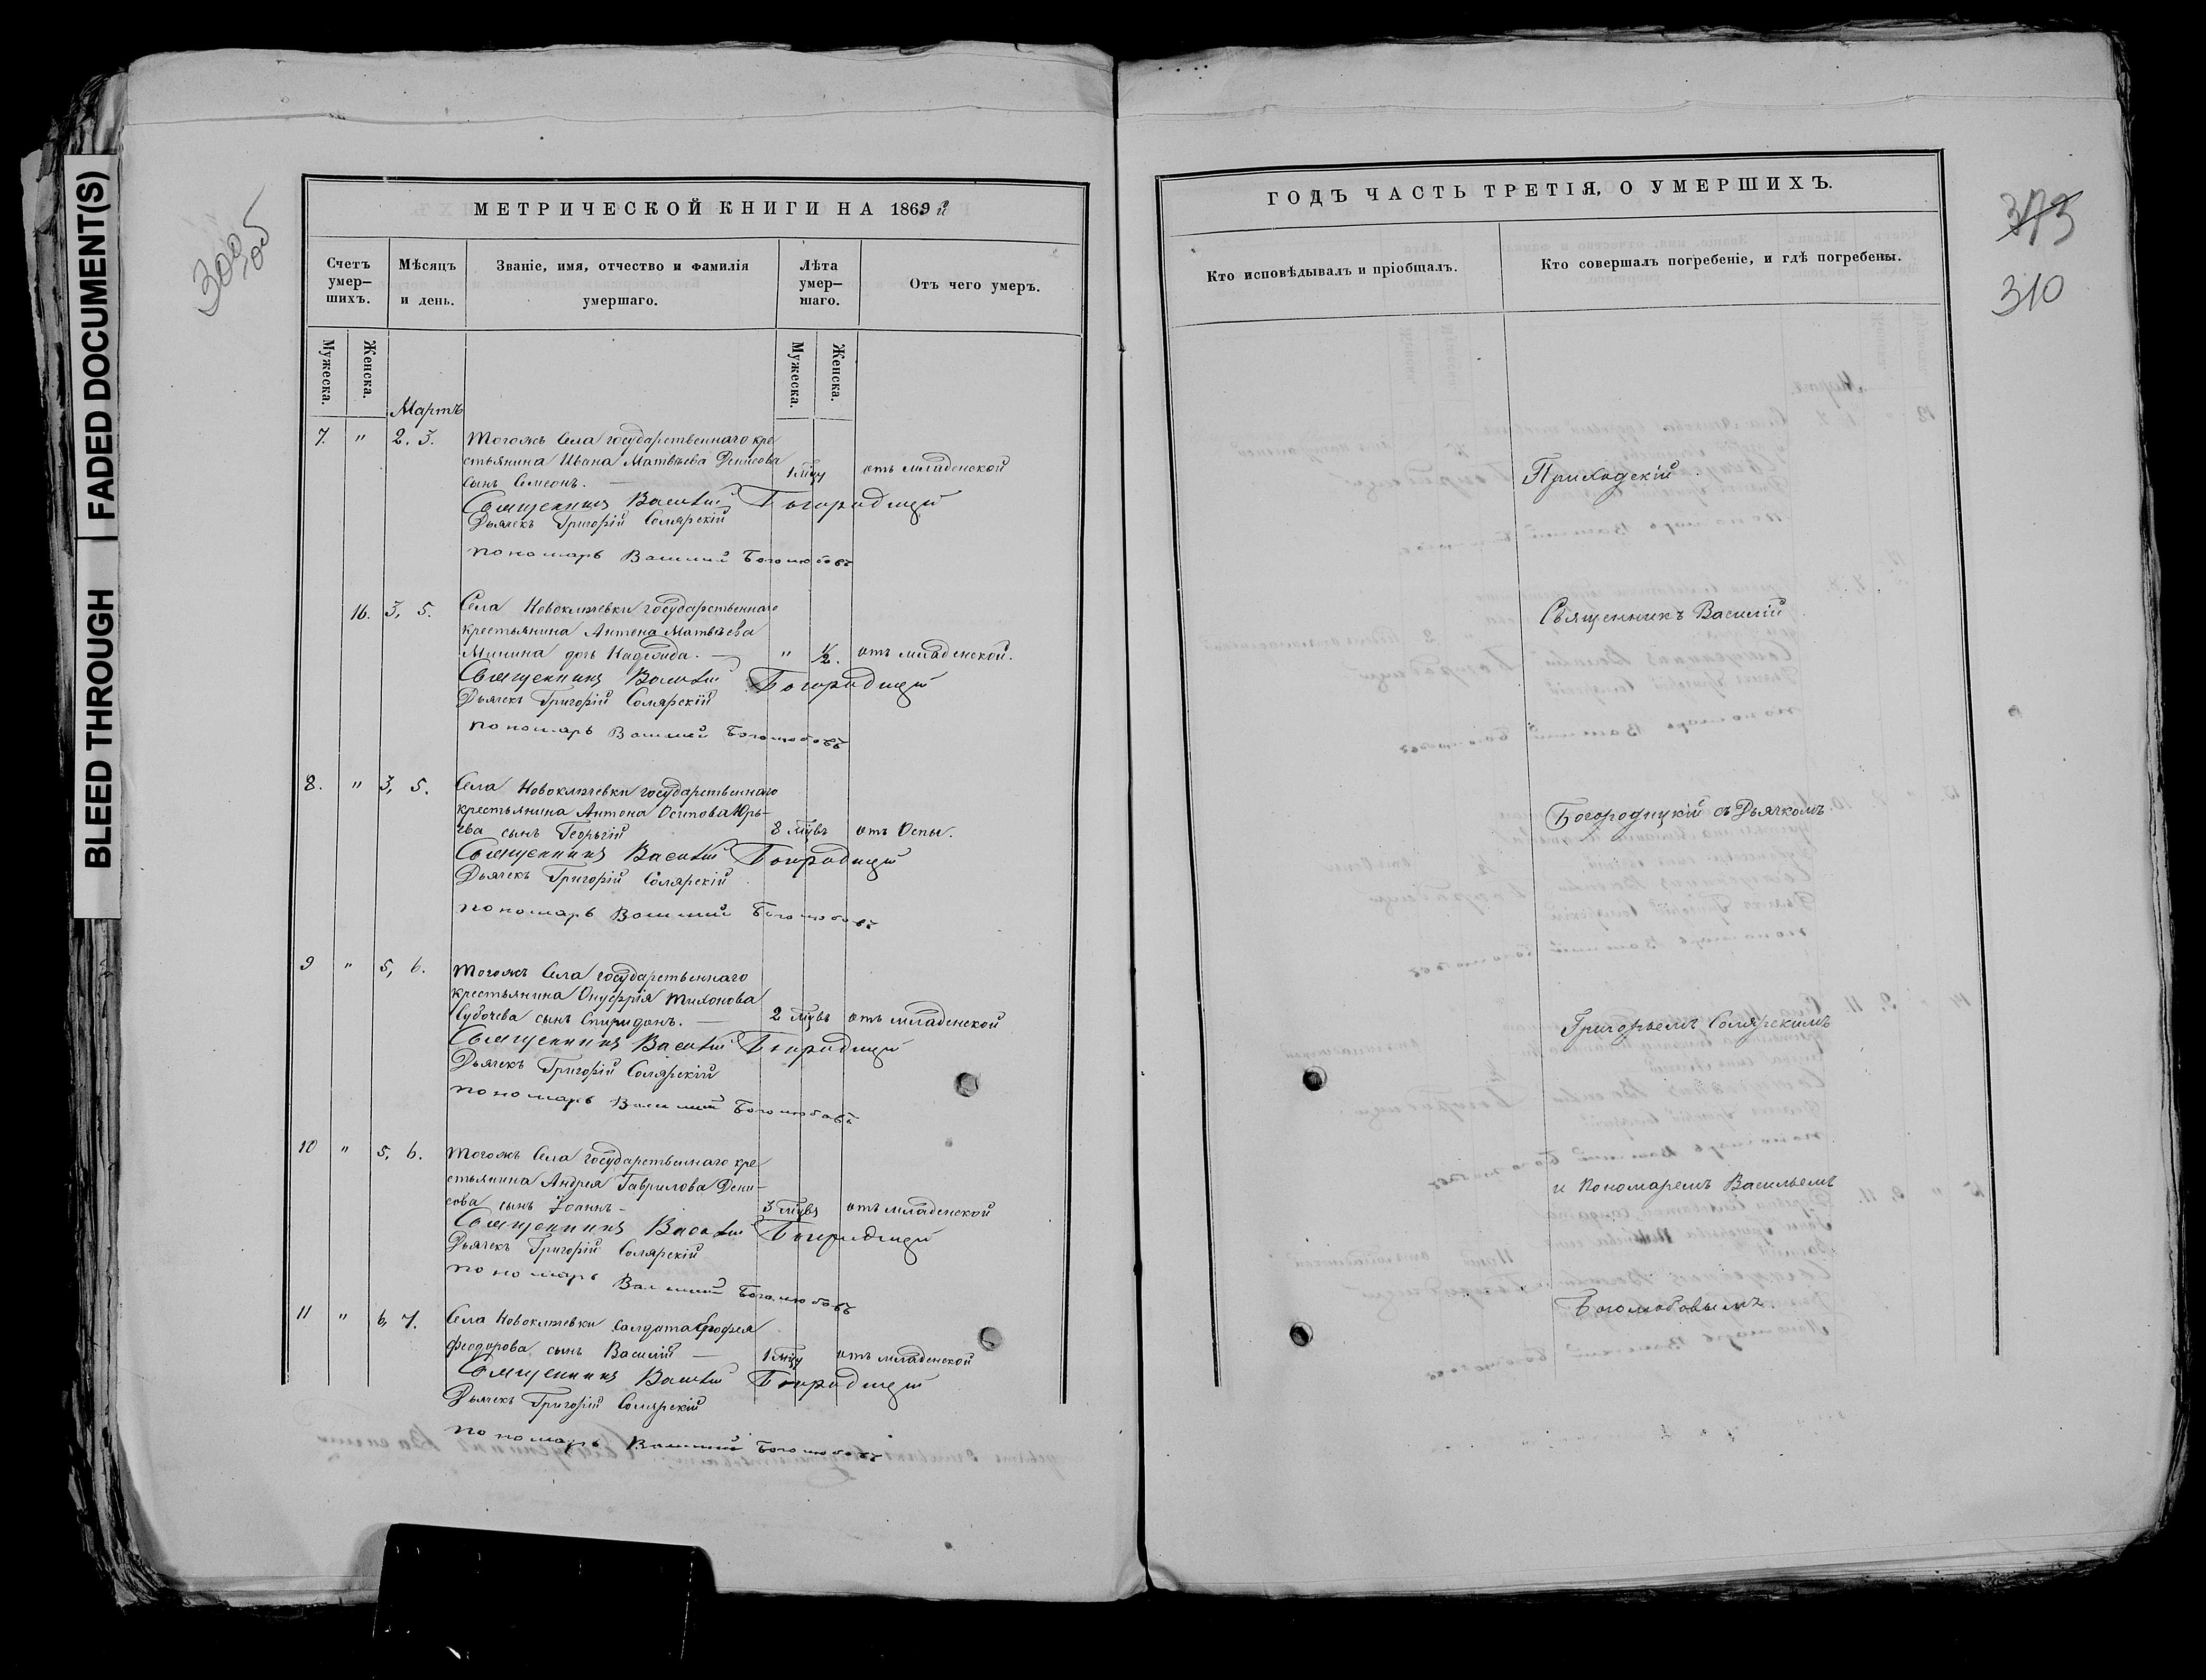 BLEED THROUGH
FADED DOCUMENT(S)
309 об
МЕТРИЧЕСКОЙ КНИГИ НА 1869 й
Счетъ умер-шихъ.
Мѣсяцъ и день.
Званіе, имя, отчество и фамилія умершаго.
Лѣта умер-шаго.
Отъ чего умеръ.
Мужеска.
Женска.
Мужеска.
Женска.
Мартъ
7. " 2. 3. Тогожъ Села государственнаго кре
стьянина Ивана Матвѣева Денисова
сынъ Симеонъ. — 1 мцу отъ младенской
Священникъ Василій Богородицкій
Дьячекъ Григорій Солярскій
пономарь Василий Боголюбовъ
16. 3, 5. Села Новоключевки государственнаго
крестьянина Антона Матвѣева
Минина дочь Надежда. — " ½. отъ младенской.
Священникъ Василій Богородицкій
Дьячекъ Григорій Солярскій
пономарь Василий Боголюбовъ
8. " 3, 5. Села Новоключевки государственнаго
крестьянина Антона Осипова Юрь-
ева сынъ Георгій 8 мцвъ отъ Оспы.
Священникъ Василій Богородицкій
Дьячекъ Григорій Солярскій
пономарь Василий Боголюбовъ
9 " 5, 6. Тогожъ Села государственнаго
крестьянина Онуфрія Тихонова
Субочева сынъ Спиридонъ. — 2 мцвъ отъ младенской
Священникъ Василій Богородицкій
Дьячекъ Григорій Солярскій
пономарь Василий Боголюбовъ
10 " 5, 6. Тогожъ Села государственнаго кре
стьянина Андрея Гаврилова Дени-
сова сынъ Іоаннъ - 3 мцвъ отъ младенской
Священникъ Василій Богородицкій
Дьячекъ Григорій Солярскій
пономарь Василий Боголюбовъ
11 " 6, 7. Села Новоключевки Солдата
Феодорова сынъ Василій — 1 мцу отъ младенской
Священникъ Василій Богородицкій
Дьячекъ Григорій Солярскій
пономарь Василий Боголюбовъ
ГОДЪ ЧАСТЬ ТРЕТІЯ, О УМЕРШИХЪ.
373
310
Кто исповѣдывалъ и пріобщалъ.
Кто совершалъ погребеніе, и гдѣ погребены.
Приходскій
Священникъ Василій
Богородицкій съ Дьячкомъ
Григорьемъ Солярскимъ
и Пономаремъ Васильемъ
Боголюбовымъ.